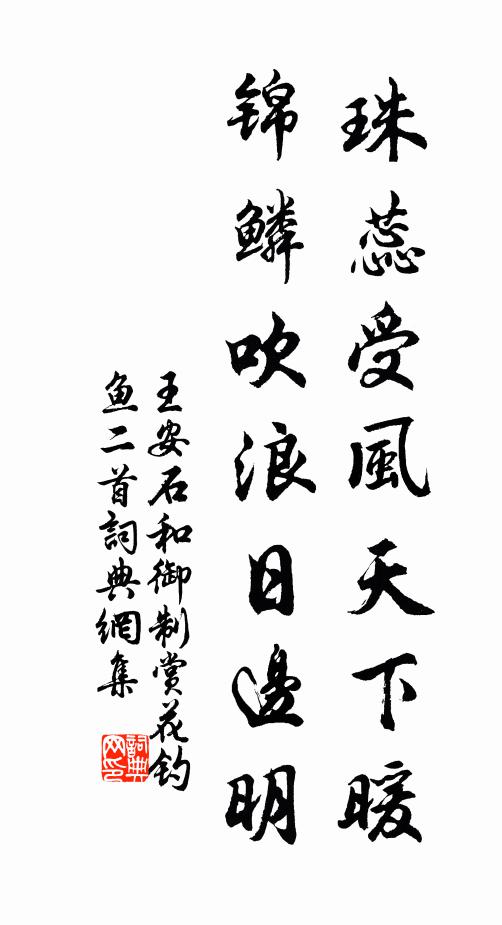 珠蕊受風天下暖
锦鳞吹浪日邊明
王安石和御制赏花钓
魚二首詞典網集
詞典
网印